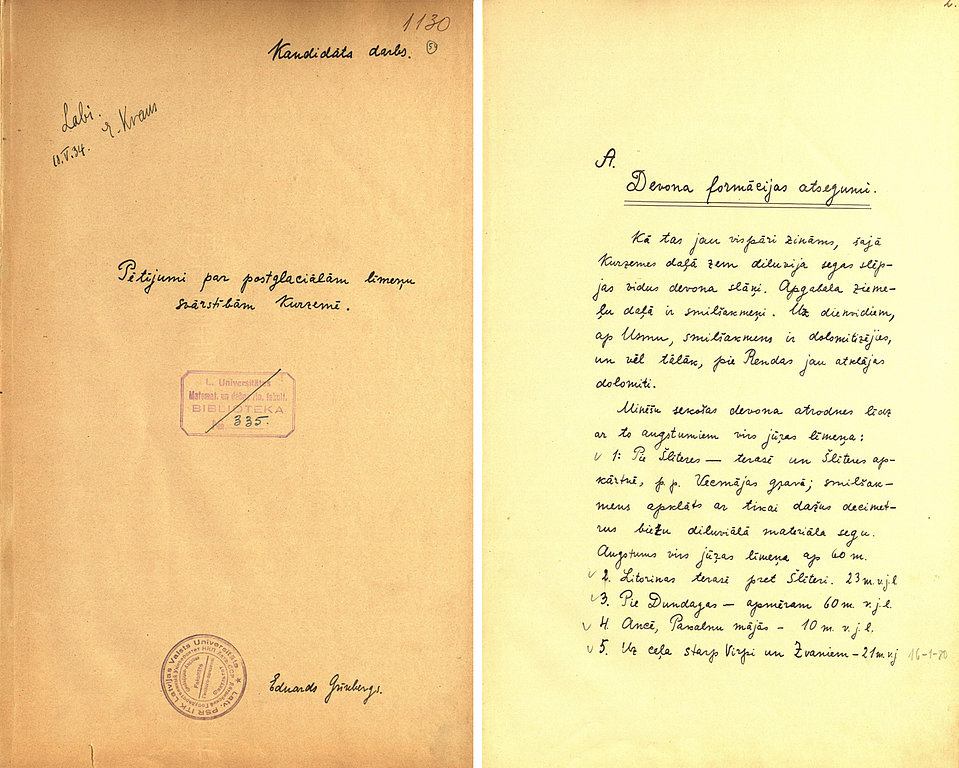 1130
Kandidāta darbs.
54
Labi.
E. Kraus
10.V.34.
Pētījumi par postglaciālām līmeņu
svārstībām Kurzemē.
L. Universitātes
Matemat. un dabas zin. fakult.
BIBLIOTEKA
№ 335.
Latvijas Valsts Universitāte
Latv. PSR ITK
Eduards Grīnbergs.
2.
A.
Devona formācijas atsegumi.
Kā tas jau vispāri zināms, šajā
Kurzemes daļā zem diluvija segas slēp-
jas vidus devona slāņi. Apgabala zieme-
ļu daļā ir smilšakmeņi. Uz dienvidiem,
ap Usmu, smilšakmens ir dolomitizējies,
un vēl tālāk, pie Rendas jau atklājas
dolomiti.
Minēšu sekošas devona atrodnes līdz
ar to augstumiem virs jūŗas līmeņa:
v 1: Pie Šlīteres — terasē un Šlīteres ap-
kārtnē, p.p. Vecmājas gravā; smilšak-
mens apklāts ar tikai dažus decimet-
rus biežu diluviālā materiāla segu.
Augstums virs jūŗas līmeņa ap 60 m.
v 2. Litorinas terasē pret Šlīteri. 23 m.v.j.l
v 3. Pie Dundagas — apmēram 60 m. v.j.l.
v 4. Ancē, Pasalnu mājās - 10 m. v.j.l.
v 5. Uz ceļa starp Virpi un Žvaniem - 21 m v j
16-1-80